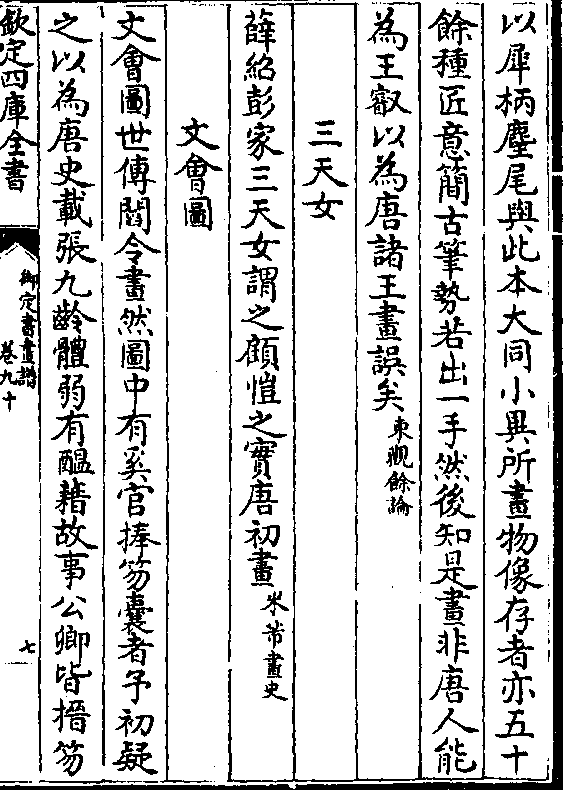 以犀柄麈尾與此本大同小異所畫物像存者亦五十
餘種匠意簡古筆勢若出一手然後知是畫非唐人能
為王叡以為唐諸王畫誤矣東觀餘論
三天女
薛紹彭家三天女謂之顧愷之實唐初畫米芾畫史
文會圖
文會圖世傳閻令畫然圖中有奚官捧笏囊者予初疑
之以為唐史載張九齡體弱有醖藉故事公卿皆搢笏
欽定四庫全書
御定書畫譜
卷九十
七